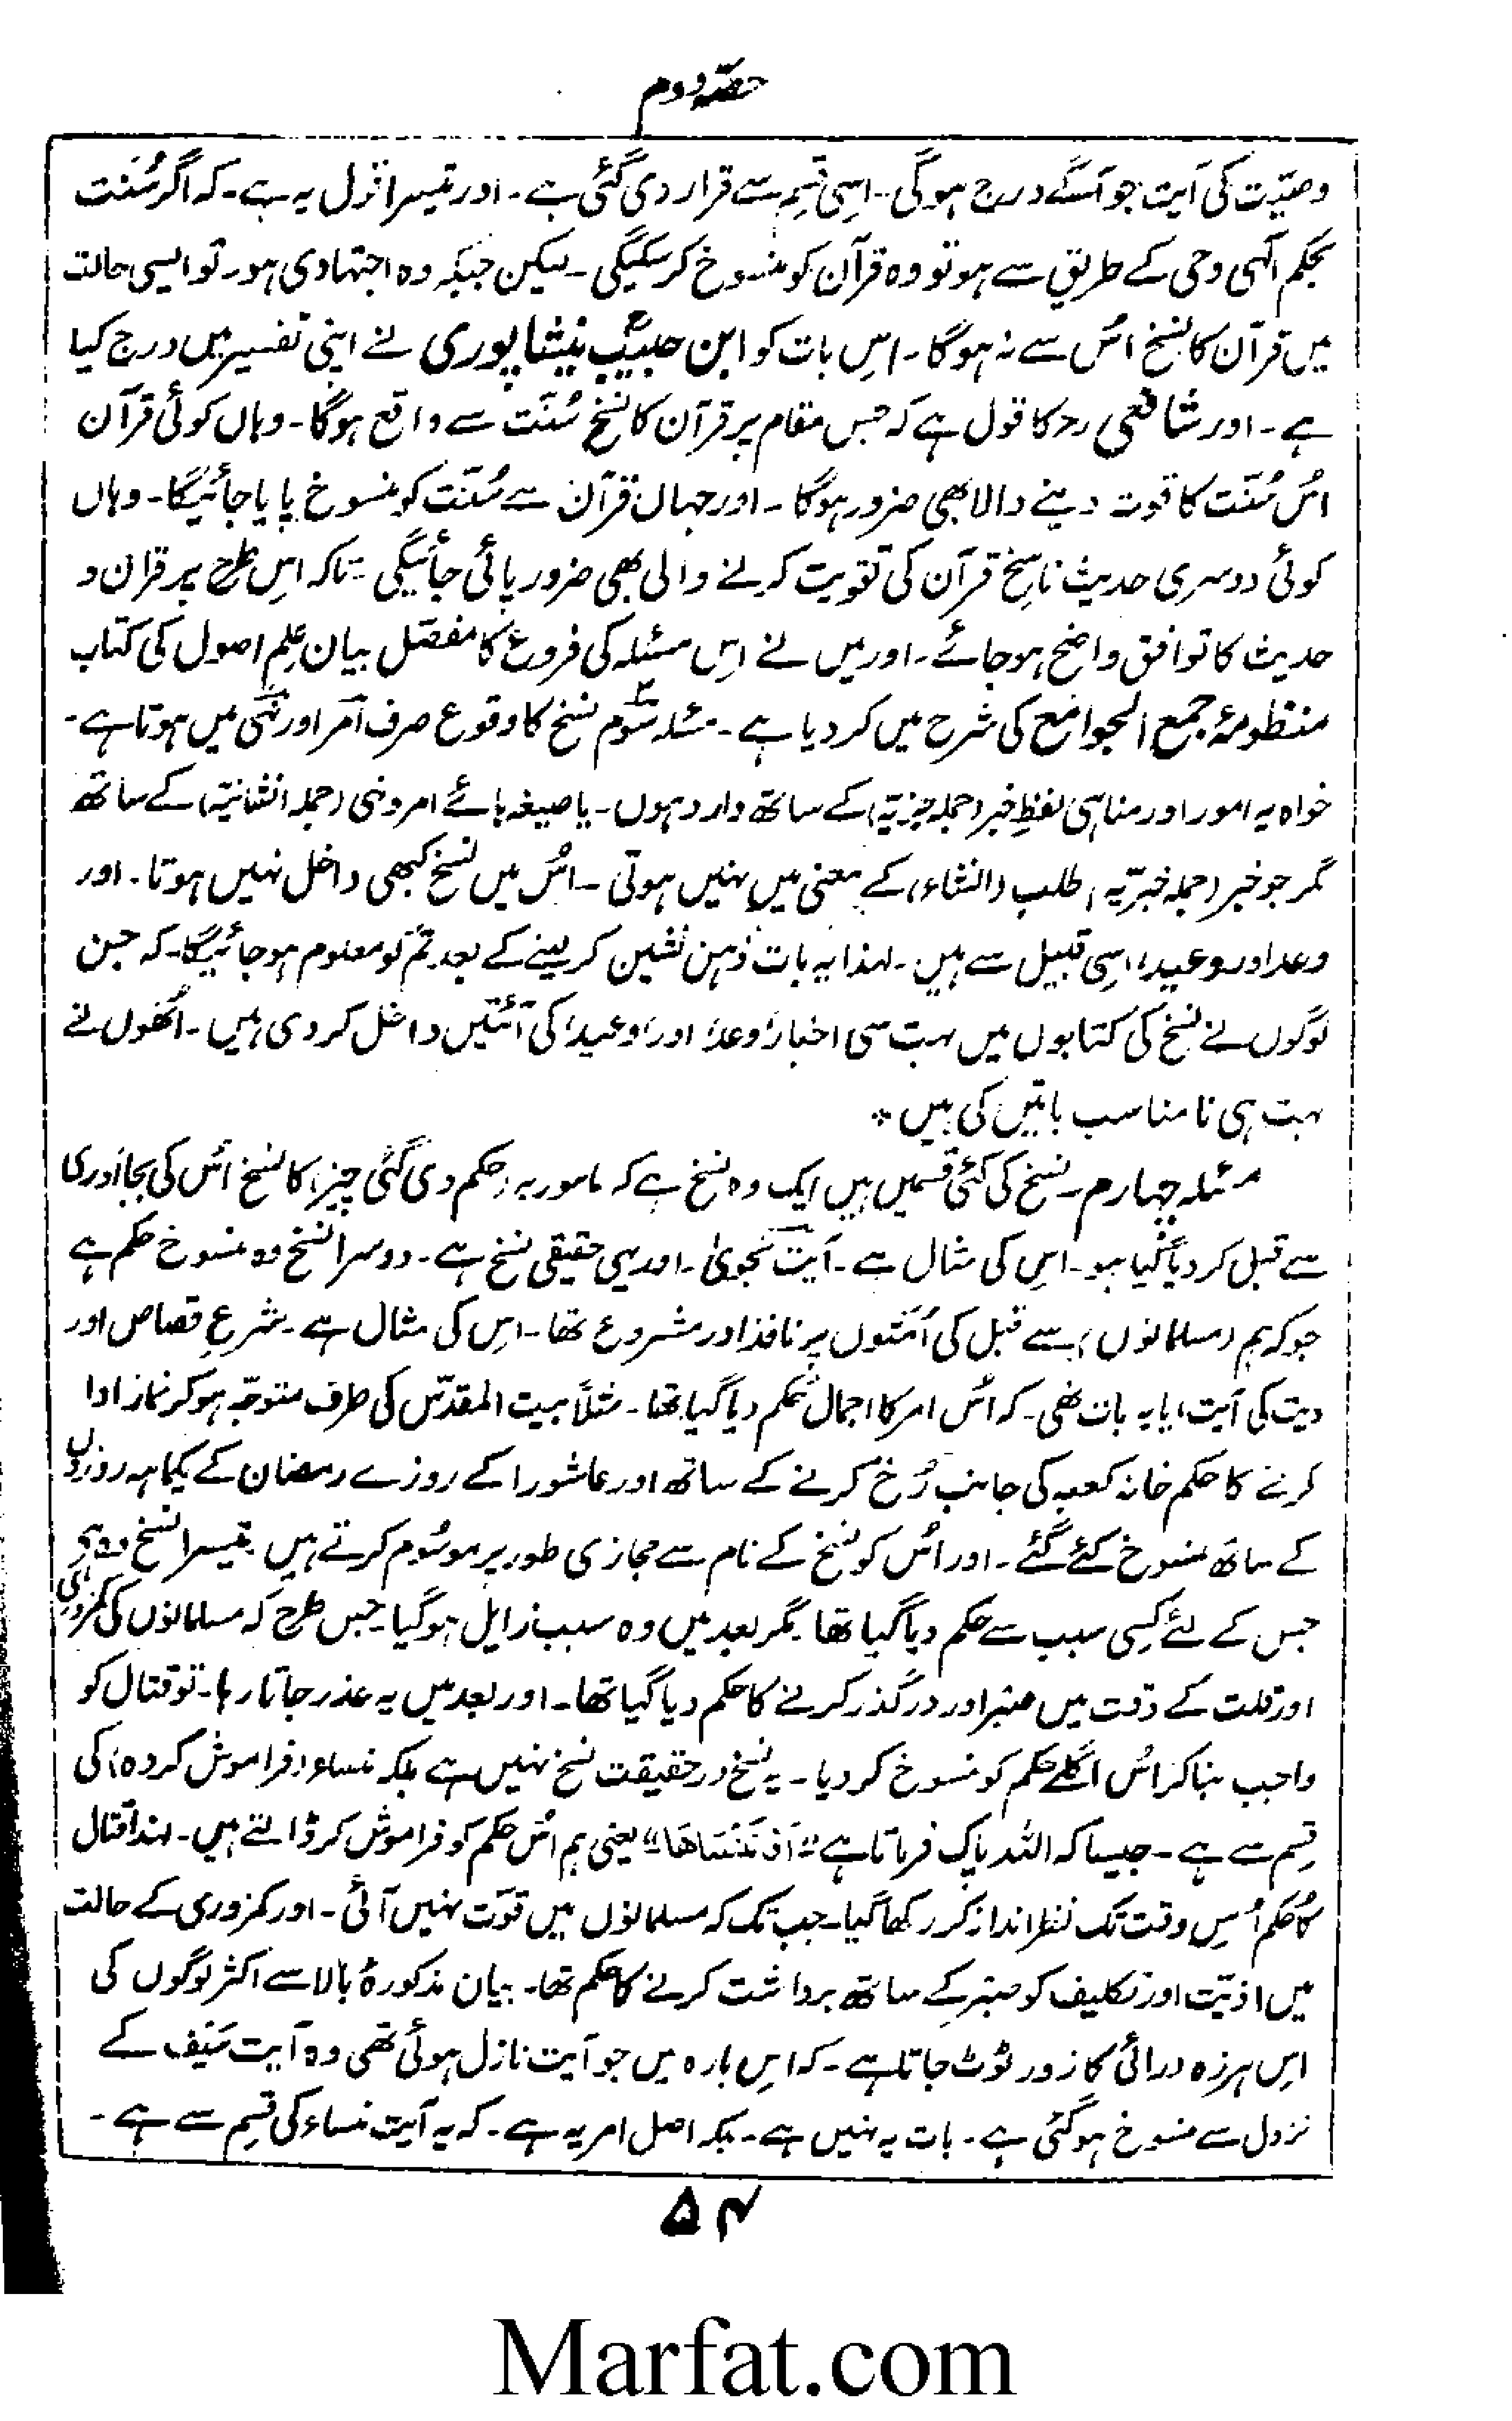 حصّہ دوم
وصیّت کی آیت جو آگے درج ہوگی۔ اسِی قسِم سے قرار دی گئی ہے۔ اور تیسرا قول یہ ہے۔ کہ اگر سُنت
بحکم الٰہی وحی کے طریق سے ہو تو وہ قرآن کو منسوخ کر سکیگی۔ لیکن جبکہ وہ اجتہادی ہو۔ تو ایسی حالت
میں قرآن کا نسخ اسُ سے نہ ہوگا۔ اسِ بات کو ابن حبیبؒ نیشاپوری نے اپنی تفسیر میں درج کیا
ہے۔ اور شافعی رح کا قول ہے کہ جس مقام پر قرآن کا نسخ سُنّت سے واقع ہوگا۔ وہاں کوئی قرآن
اسُ سُنّت کا قوت دینے والا بھی ضرور ہوگا۔ اور جہاں قرآن سے سُنّت کو منسوخ پایا جائیگا۔ وہاں
کوئی دوسری حدیث ناسخِ قرآن کی تقویت کرنے والی بھی ضرور پائی جائیگی۔ تاکہ اسِ طرح پر قران و
حدیث کا توافق واضح ہو جائے۔ اور میں نے اسِ مسئلہ کی فروع کا مفصّل بیان علِم اصول کی کتاب
منظومۂ جمع الجوامع کی شرح میں کر دیا ہے۔ مسئلہ سوّم نسخ کا وقوع صرف اَمر اور نہی میں ہوتا ہے۔
خواہ یہ امور اور مناہی لفظِ خبر (جملہ خبریّہ) کے ساتھ وارد ہوں۔ یا صیغہ ہائے امر و نہی (جملہ انشائیّہ) کے ساتھ
مگر جو خبر (جملہ خبریّہ) طلب (انشاء) کے معنی میں نہیں ہوتی۔ اسُ میں نسخ کبھی داخل نہیں ہوتا۔ اور
وعد اور وعید، اسِی قبیل سے ہیں۔ لہذا یہ بات ذہن نشین کر لینے کے بعد تم کو معلوم ہو جائیگا۔ کہ جن
لوگوں نے نسخ کی کتابوں میں بہت سی اخبار، وعد، اور، وعید، کی آئتیں داخل کر دی ہیں۔ اُنھوں نے
بہت ہی نا مناسب باتیں کی ہیں *
مسئلہ چہارم۔ نسخ کی کئی قسمیں ہیں ایک وہ نسخ ہے کہ مامور بہ (حکم دی گئی چیز) کا نسخ اسُ کی بجا آوری
سے قبل کر دیا گیا ہو۔ اسِ کی مثال ہے۔ آیت نجویٰ۔ اور یہی حقیقی نسخ ہے۔ دوسرا نسخ وہ منسوخ حکم ہے
جو کہ ہم (مسلمانوں) سے قبل کی اُمّتوں پر نافذ اور مشروع تھا۔ اسِ کی مثال ہے۔ شرعِ قصاص اور
دیت کی آیت، یا یہ بات تھی۔ کہ اسُ امر کا اجمالی حکم دیا گیا تھا۔ مثلاً بیت المقدّس کی طرف متوجّہ ہو کر نماز ادا
کرنے کا حکم خانہ کعبہ کی جانب رُخ کرنے کے ساتھ اور عاشورا کے روزے رمضان کے یکماہہ روزوں
کے ساتھ منسوخ کئے گئے۔ اور اسُ کو نسخ کے نام سے مجازی طور پر موسُوم کرتے ہیں۔ تیسرا نسخ وہ ہے
جس کے لئے کسِی سبب سے حکم دیا گیا تھا۔ مگر بعد میں وہ سبب زایل ہو گیا۔ جس طرح کہ مسلمانوں کی کمزوری
اور قلت کے وقت میں صبر اور درگذر کرنے کا حکم دیا گیا تھا۔ اور بعد میں یہ عذر جاتا رہا۔ تو قتال کو
واجب بنا کر اسُ اگلے حکم کو منسوخ کر دیا۔ یہ نسخ در حقیقت نسخ نہیں ہے بلکہ منساء (فراموش کردہ) کی
قسِم سے ہے۔ جیسا کہ اللہ پاک فرماتا ہے "اَوْ نَنْسَاھَا" یعنی ہم اسُ حکم کو فراموش کر ڈالتے ہیں۔ لہذا قتال
کا حُکم اُسِ وقت تک نظر انداز کر رکھا گیا۔ جب تک کہ مسلمانوں میں قوّت نہیں آئی۔ اور کمزوری کے حالت
میں اذیّت اور تکلیف کو صبر کے ساتھ برداشت کرنے کا حکم تھا۔ بیان مذکورۂ بالا سے اکثر لوگوں کی
اسِ ہرزہ درائی کا زور ٹوٹ جاتا ہے۔ کہ اسِ بارہ میں جو آیت نازل ہوئی تھی وہ آیت سَیف کے
نزول سے منسوخ ہو گئی ہے۔ بات یہ نہیں ہے۔ بلکہ اصل امر یہ ہے۔ کہ یہ آیت منساء کی قسِم سے ہے۔
۵۴
Marfat.com